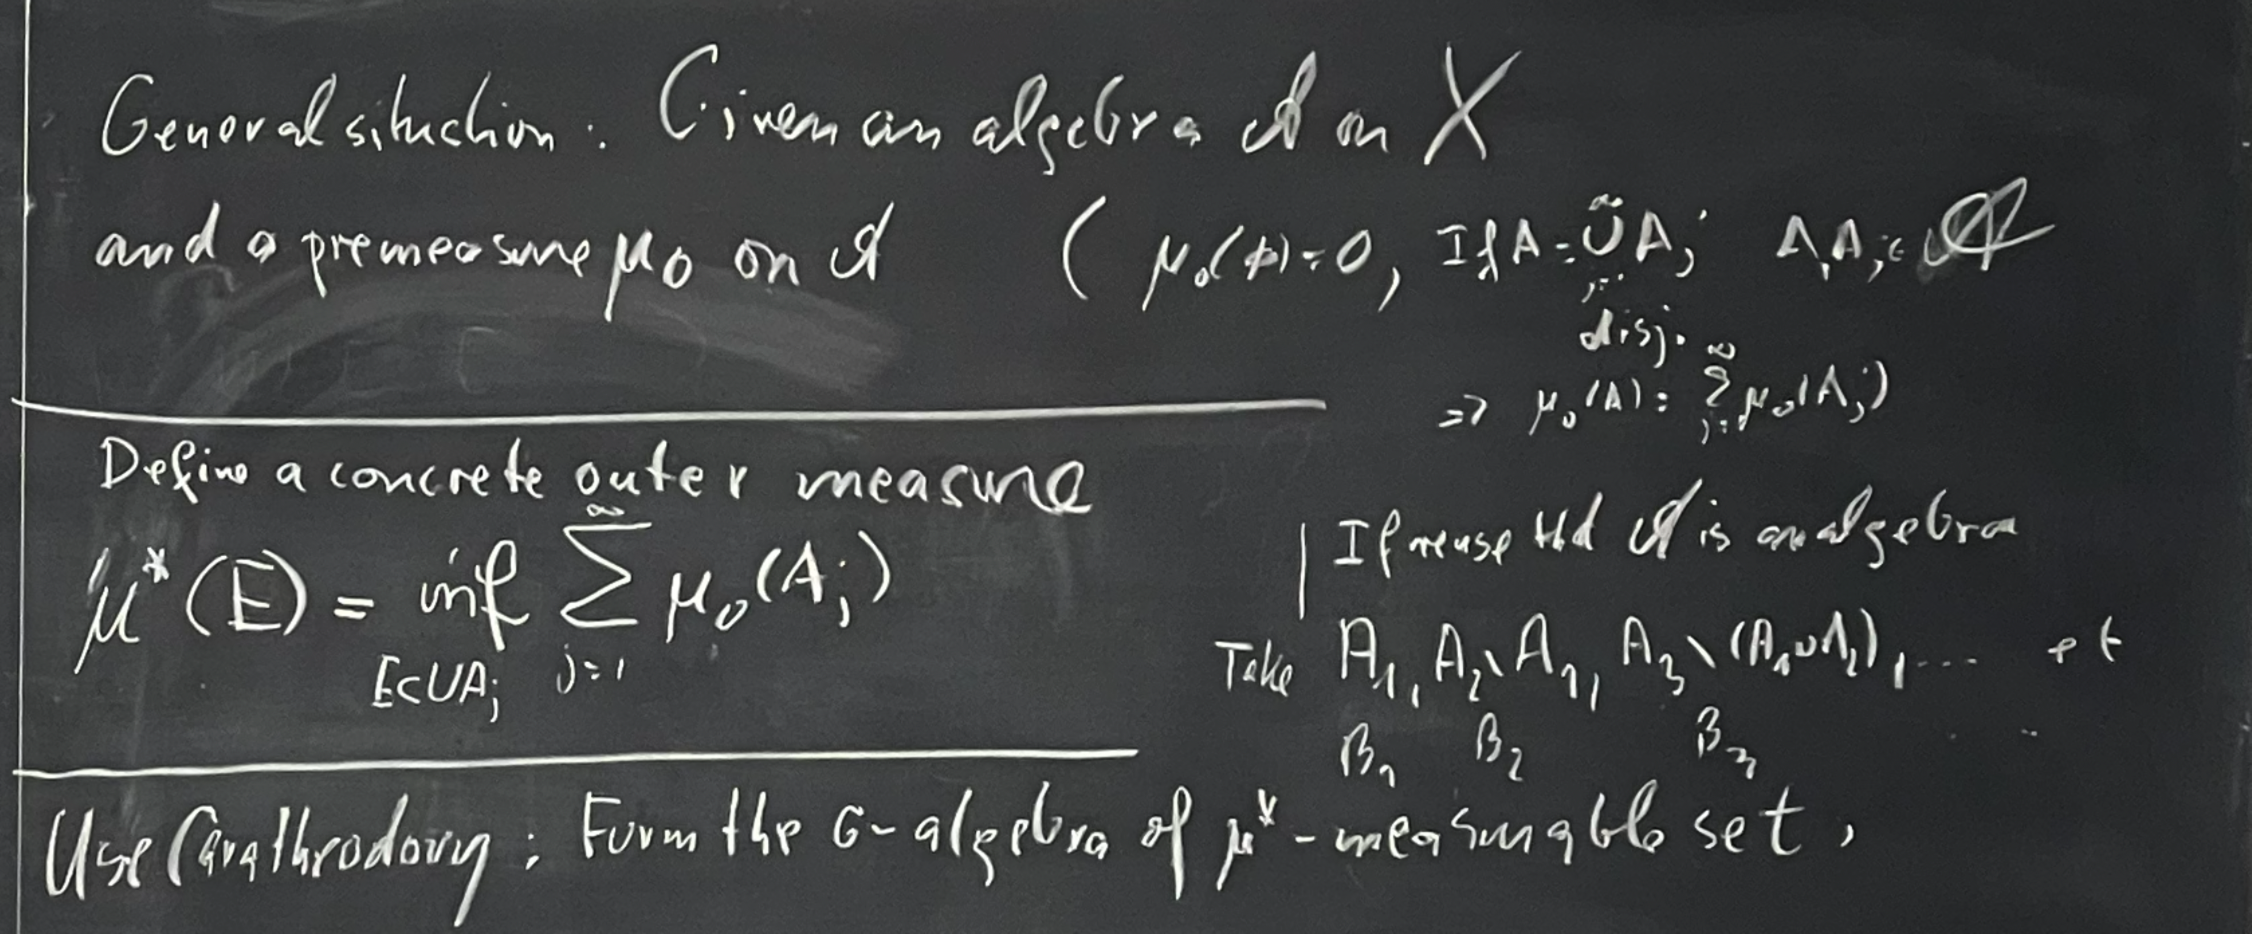 General situation: Given an algebra 𝒜 on X
and a premeasure μ₀ on 𝒜 ( μ₀(∅)=0, If A = ∞⋃j=1 Aj A, Aj ∈ 𝒜
disj.
=> μ₀(A) = ∞∑j=1 μ₀(Aj)
Define a concrete outer measure
μ*(E) = inf ∞∑j=1 μ₀(Aj)
E⊂∪Aj
If we use that 𝒜 is an algebra
Take A₁, A₂\A₁, A₃\(A₁∪A₂), ... et
B₁ B₂ B₃ ..
Use Carathrodory: Form the σ-algebra of μ*-measurable set,